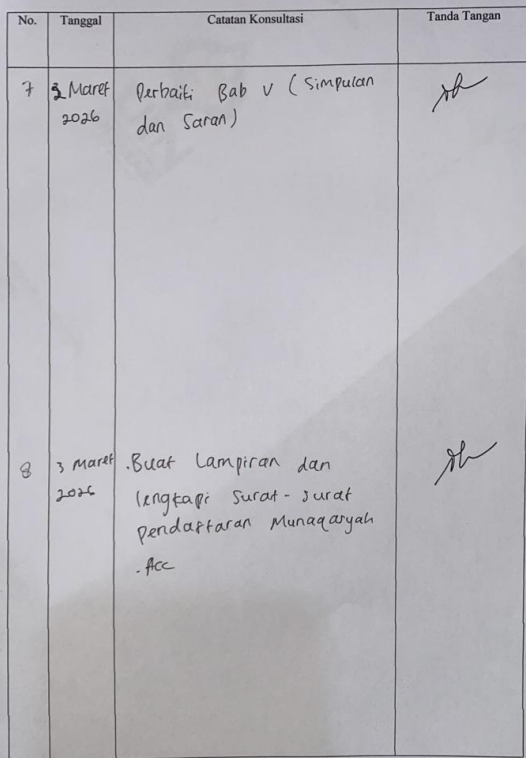 No. Tanggal Catatan Konsultasi Tanda Tangan
7 2 Maret Perbaiki Bab V (Simpulan
2026 dan Saran)
8 3 Maret .Buat Lampiran dan
2026 lengkapi Surat-surat
Pendaftaran Munaqasyah
.Acc